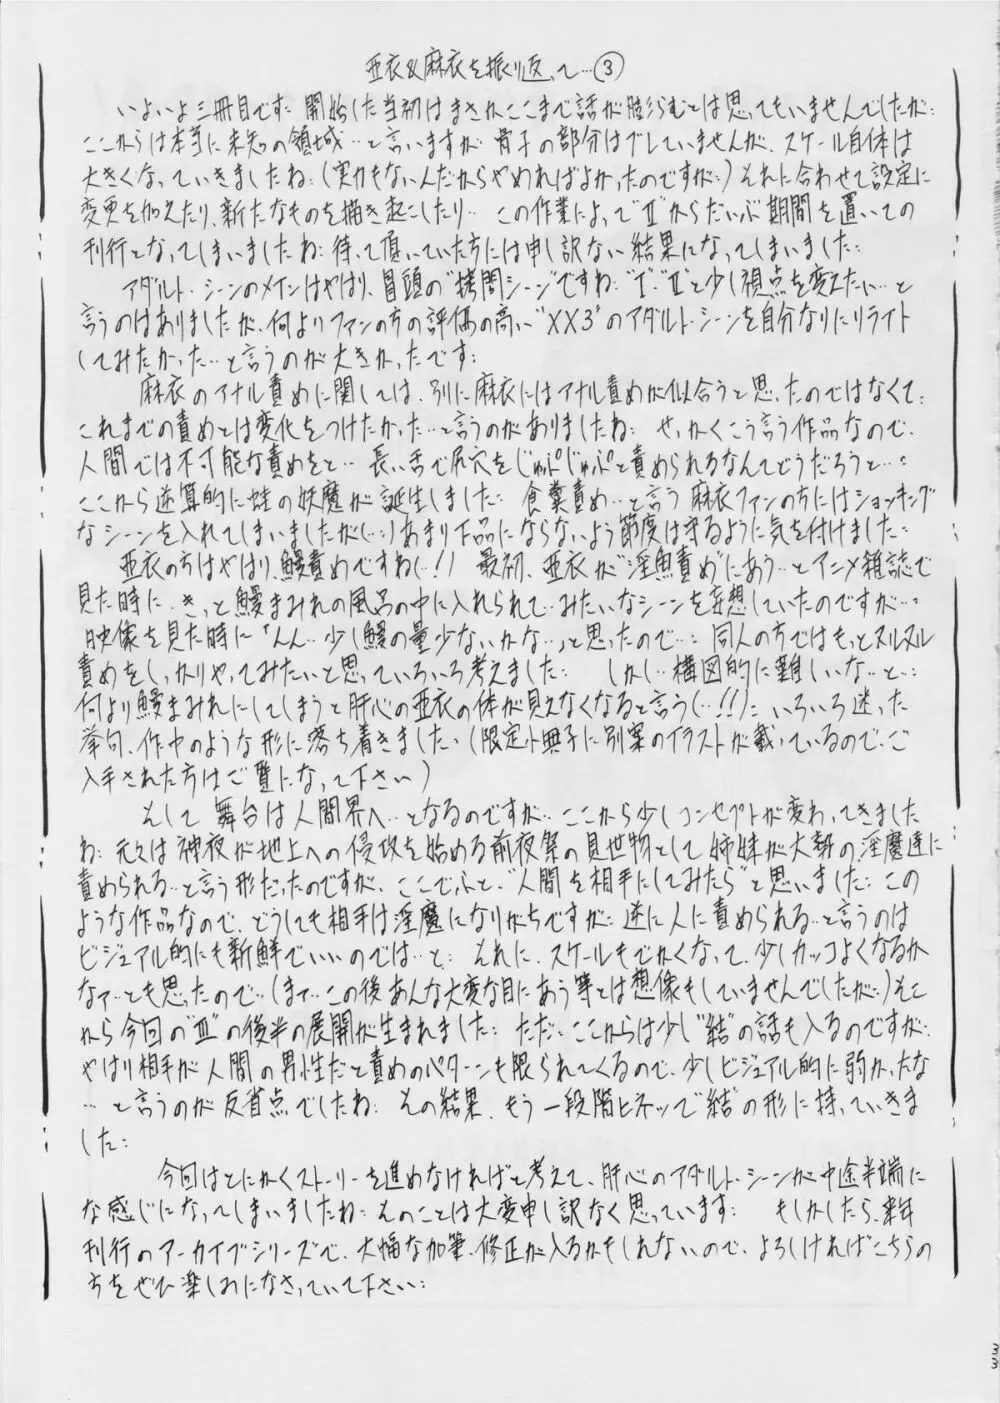 亜衣&麻衣を振り返って…③
いよいよ三冊目です… 開始した当初はまさかここまで話が膨らむとは思ってもいませんでしたが…
ここからは本当に未知の領域…と言いますが 骨子の部分はブレていませんが、スケール自体は
大きくなっていきましたね…(実力もないんだからやめればよかったのですが…)それに合わせて設定に
変更を加えたり、新たなものを描き起こしたり… この作業によって“Ⅱ”からだいぶ期間を置いての
刊行となってしまいましたね… 待って頂いていた方には申し訳ない結果になってしまいました…
アダルト・シーンのメインはやはり、冒頭の“拷問シーン”ですね… “Ⅰ”“Ⅱ”と少し視点を変えたい…と
言うのはありましたが、何よりファンの方の評価の高い“XX3”のアダルト・シーンを自分なりにリライト
してみたかった…と言うのが大きかったです…
麻衣のアナル責めに関しては、別に麻衣にはアナル責めが似合うと思ったのではなくて…
これまでの責めとは変化をつけたかった…と言うのがありましたね… せっかくこう言う作品なので、
人間では不可能な責めをと… 長い舌で尻穴をじゅぷじゅぷと責められるなんてどうだろうと…
ここから逆算的に蛙の妖魔が誕生しました… 食糞責め…と言う麻衣ファンの方にはショッキング
なシーンを入れてしまいましたが(…)あまり下品にならないよう節度は守るように気を付けました…
亜衣の方はやはり、鰻責めですね(…!) 最初、亜衣が“淫魚責め”にあう…とアニメ雑誌で
見た時に、きっと鰻まみれの風呂の中に入れられて…みたいなシーンを妄想していたのですが…
映像を見た時に「んん…少し鰻の量少ないかな…」と思ったので… 同人の方ではもっとヌルヌル
責めをしっかりやってみたいと思っていろいろ考えました… しかし…構図的に難しいな…と…
何より鰻まみれにしてしまうと肝心の亜衣の体が見えなくなると言う(…!!)… いろいろ迷った
挙句、作中のような形に落ち着きました…(限定小冊子に別案のイラストが載っているので、ご
入手された方はご覧になって下さい)
そして 舞台は人間界へ…となるのですが… ここから少しコンセプトが変わってきました
ね… 元々は神夜が地上への侵攻を始める前夜祭の見世物として姉妹が大勢の淫魔達に
責められる…と言う形だったのですが、ここでふと、“人間を相手にしてみたら”と思いました… この
ような作品なので、どうしても相手は淫魔になりがちですが… 逆に人に責められる…と言うのは
ビジュアル的にも新鮮でいいのでは…と… それに、スケールもでかくなって、少しカッコよくなるか
なァ…とも思ったので…(まァ…この後あんな大変な目にあう等とは想像もしていませんでしたが…)そこ
から今回の“Ⅲ”の後半の展開が生まれました… ただ… ここからは少し“結”の話も入るのですが…
やはり相手が人間の男性だと責めのパターンも限られてくるので、少しビジュアル的に弱かったな
…と言うのが反省点でしたね… その結果、もう一段階ヒネって“結”の形に持っていきま
した…
今回はとにかくストーリーを進めなければと考えて、肝心のアダルト・シーンが中途半端に
な感じになってしまいましたね… そのことは大変申し訳なく思っています… もしかしたら、来年
刊行のアーカイブシリーズで、大幅な加筆・修正が入るかもしれないので、よろしければこちらの
方をぜひ楽しみになさっていて下さい…
33